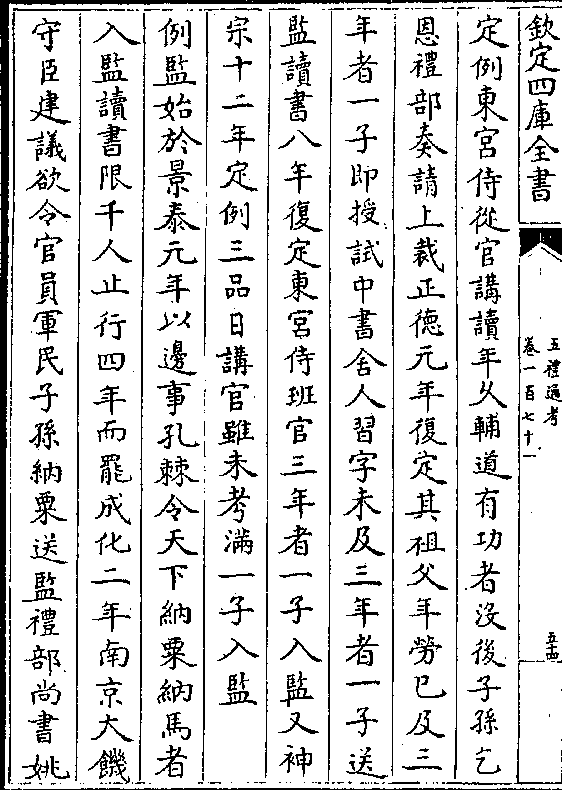 欽定四庫全書
五禮通考
卷一百七十一
五十四
定例東宮侍從官講讀年乆輔道有功者沒後子孫乞
恩禮部奏請上裁正德元年復定其祖父年勞已及三
年者一子即授試中書舍人習字未及三年者一子送
監讀書八年復定東宮侍班官三年者一子入監又神
宗十二年定例三品日講官雖未考滿一子入監
例監始於景泰元年以邊事孔棘令天下納粟納馬者
入監讀書限千人止行四年而罷成化二年南京大饑
守臣建議欲令官員軍民子孫納粟送監禮部尚書姚